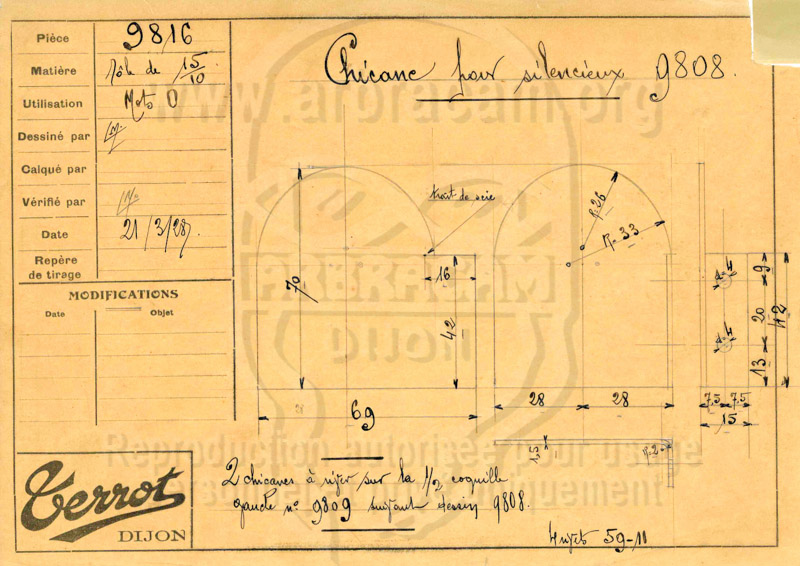 Pièce 9816
Matière Tôle de 15/10
Utilisation Moto O
Dessiné par
Calqué par
Vérifié par
Date 21/3/28
Repère
de tirage
MODIFICATIONS
Date Objet
Chicane pour silencieux 9808.
trait de scie
R=26
R=33
70
16
42
69
28 28
1,5
R=2
d=4
d=4
9
20
13
42
7,5 7,5
15
2 chicanes à river sur la 1/2 coquille
gauche n° 9809 suivant dessin 9808.
4 rivets 59-11
Terrot
DIJON
www.arbracam.org
ARBRACAM
DIJON
Reproduction autorisée pour usage
personnel uniquement